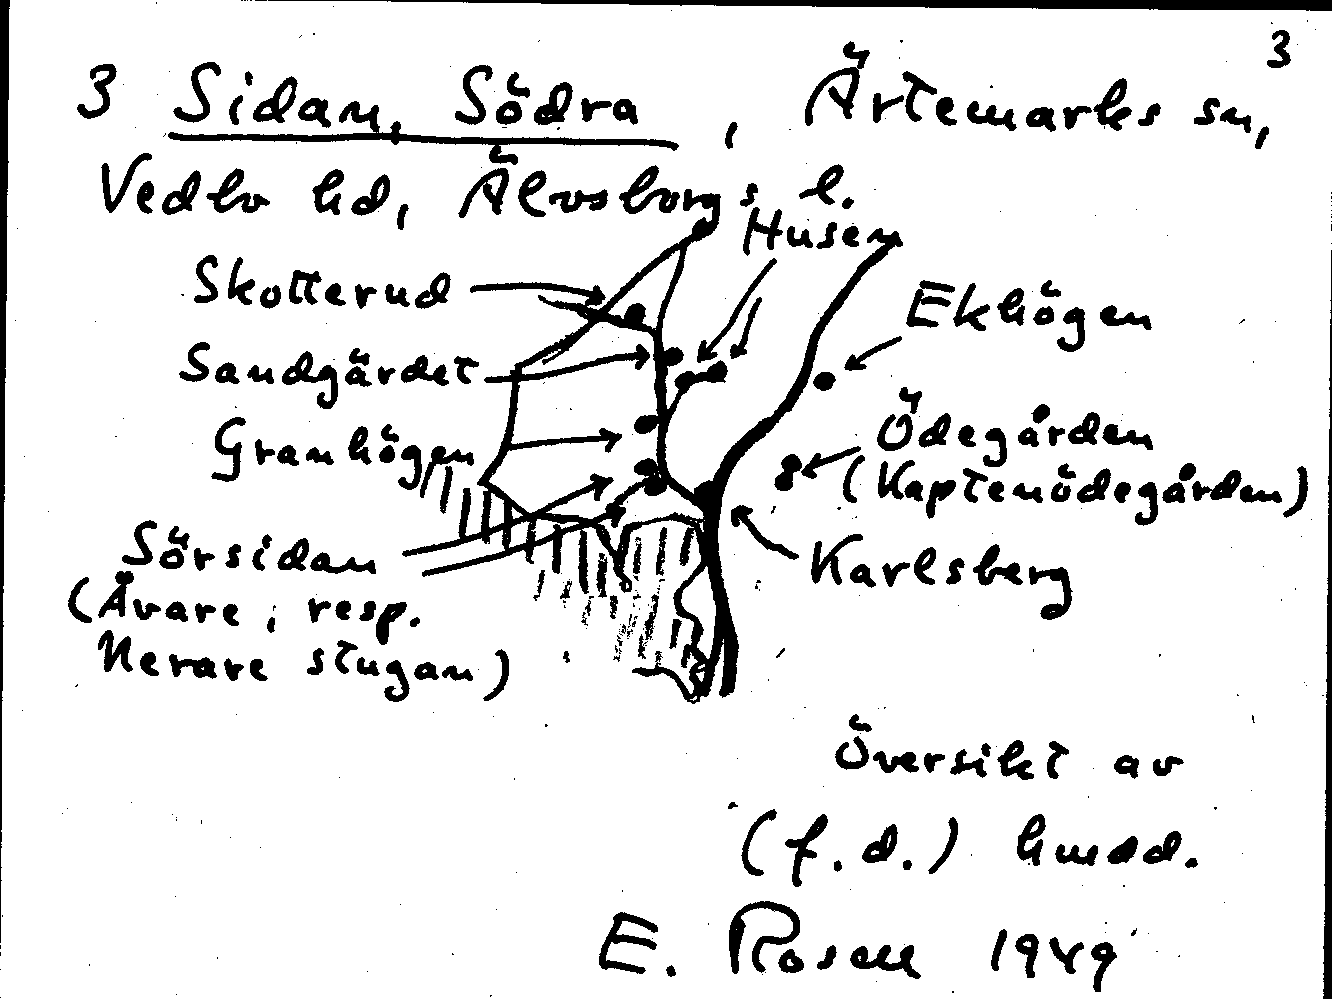 3
3 Sidan, Södra, Ärtemarks sn,
Vedbo hd, Älvsborgs l.
Husen
Skotterud
Ekhögen
Sandgärdet
Ödegården
Granhögen
(Kaptenödegården)
Sörsidan
Karlsberg
(Åvare, resp.
Nerare stugan)
Översikt av
(f.d.) hmdd.
E. Rosell 1949